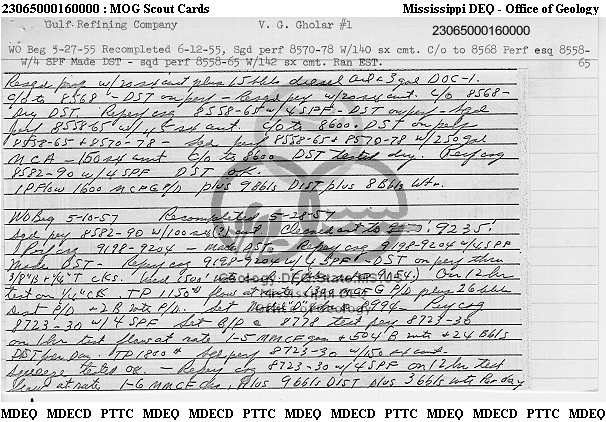 23065000160000 : MOG Scout Cards Mississippi DEQ - Office of Geology
Gulf Refining Company V. G. Gholar #1 23065000160000
WO Beg 5-27-55 Recompleted 6-12-55, Sgd perf 8570-78 W/140 sx cmt. C/o to 8568 Perf esq 8558-
W/4 SPF Made DST - sqd perf 8558-65 W/142 sx cmt. Ran EST. 65
w/20 sx cmt plus 15 bbls diesel oil & 3 gal DOC-1.
c/o to 8568 - DST on perf - w/20 sx cmt. c/o 8568-
Dry DST. csg 8558-65 w/4 SPF - DST on perf - Sqd
perf 8558-65 w/ sx cmt. c/o to 8600. DST on perfs
8558-65 & 8570-78 - Sqd perf 8558-65 & 8570-78 w/250 gal
MCA - 160 sx cmt c/o to 8600 DST tested dry. Perf csg
8582-90 w/4 SPF DST OK.
IPFlow 1600 MCFGP/D plus 9 bbls DIST plus 8 Bbls Wtr.
WO Beg 5-10-57 Recompleted 5-28-57
Sqd perf 8582-90 w/100 sx Cleaned out to 9235'
Perf csg 9198-9204 - Made DST - Reperf csg 9198-9204 w/4 SPF
Made DST - Reperf csg 9198-9204 w/4 SPF. DST on perf thru
3/8" B & 1/4" T CKS. Used 1500' On 12 hr
test on CK TP 1150# flow at rate MCFG P/D plus 26 bbls
Dist P/D & 2 B wtr P/D. Set Model "D" 8994 - Perf csg
8723-30 w/4 SPF Set B/P @ 8778 test perf 8723-30
on 1 hr test flow at rate 1-5 MMCF gas & 504 B wtr & 24 Bbls
DIST per Day. TP 1800# Sqd perf 8723-30 w/150 sx cmt.
Squeeze tested OK. - Reperf csg 8723-30 w/4 SPF on 12 hr test
flow at rate 1-6 MMCF Gas, plus 9 bbls DIST plus 36 bbls wtr Per day
Geology DEQ State MS
MDEQ MDECD PTTC MDEQ MDECD PTTC MDEQ MDECD PTTC MDEQ MDECD PTTC